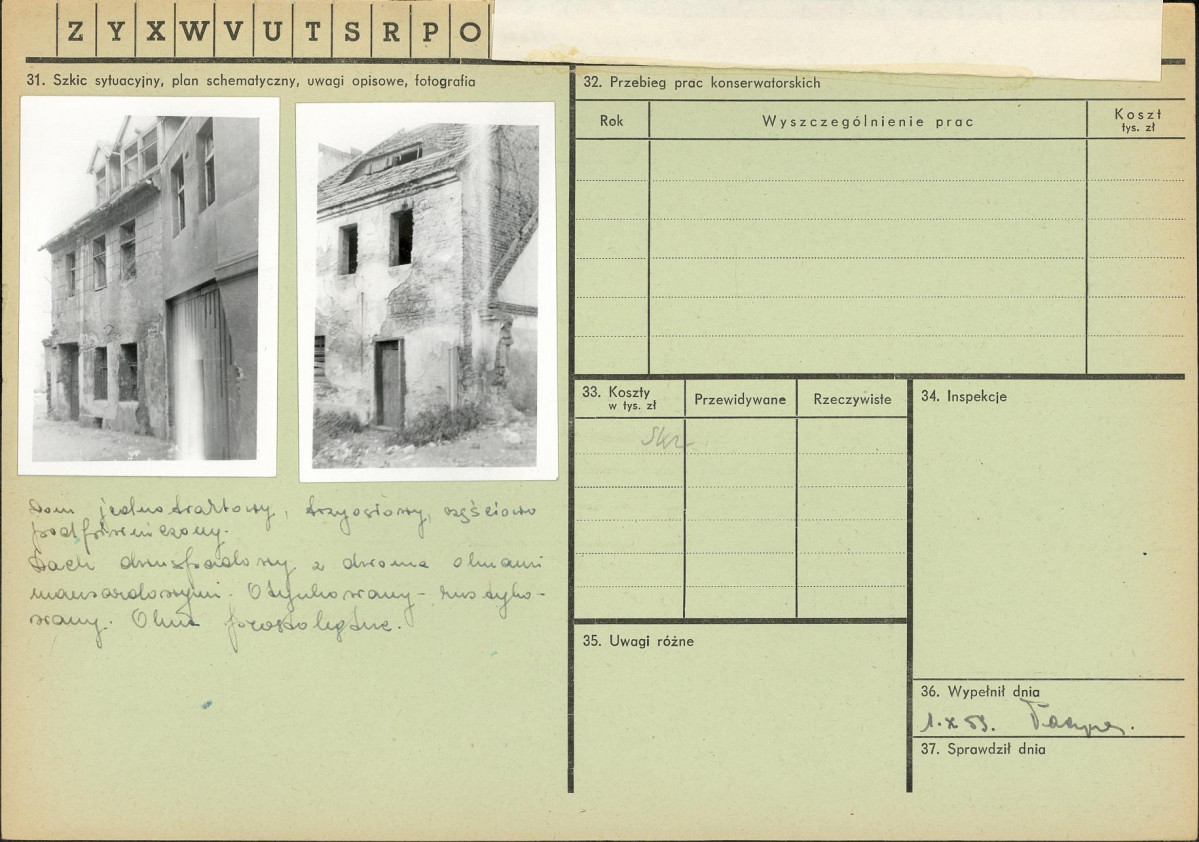 Z Y X W V U T S R P O
31. Szkic sytuacyjny, plan schematyczny, uwagi opisowe, fotografia
Dom jednotraktowy, trzyosiowy, częściowo
podpiwniczony.
Dach dwuspadowy z dwoma oknami
mansardowymi. Otynkowany - rustyko-
wany. Okna prostokątne.
32. Przebieg prac konserwatorskich
Rok
Wyszczególnienie prac
Koszt
tys. zł
33. Koszty
w tys. zł
Przewidywane
Rzeczywiste
34. Inspekcje
35. Uwagi różne
36. Wypełnił dnia
1.X 59.
37. Sprawdził dnia